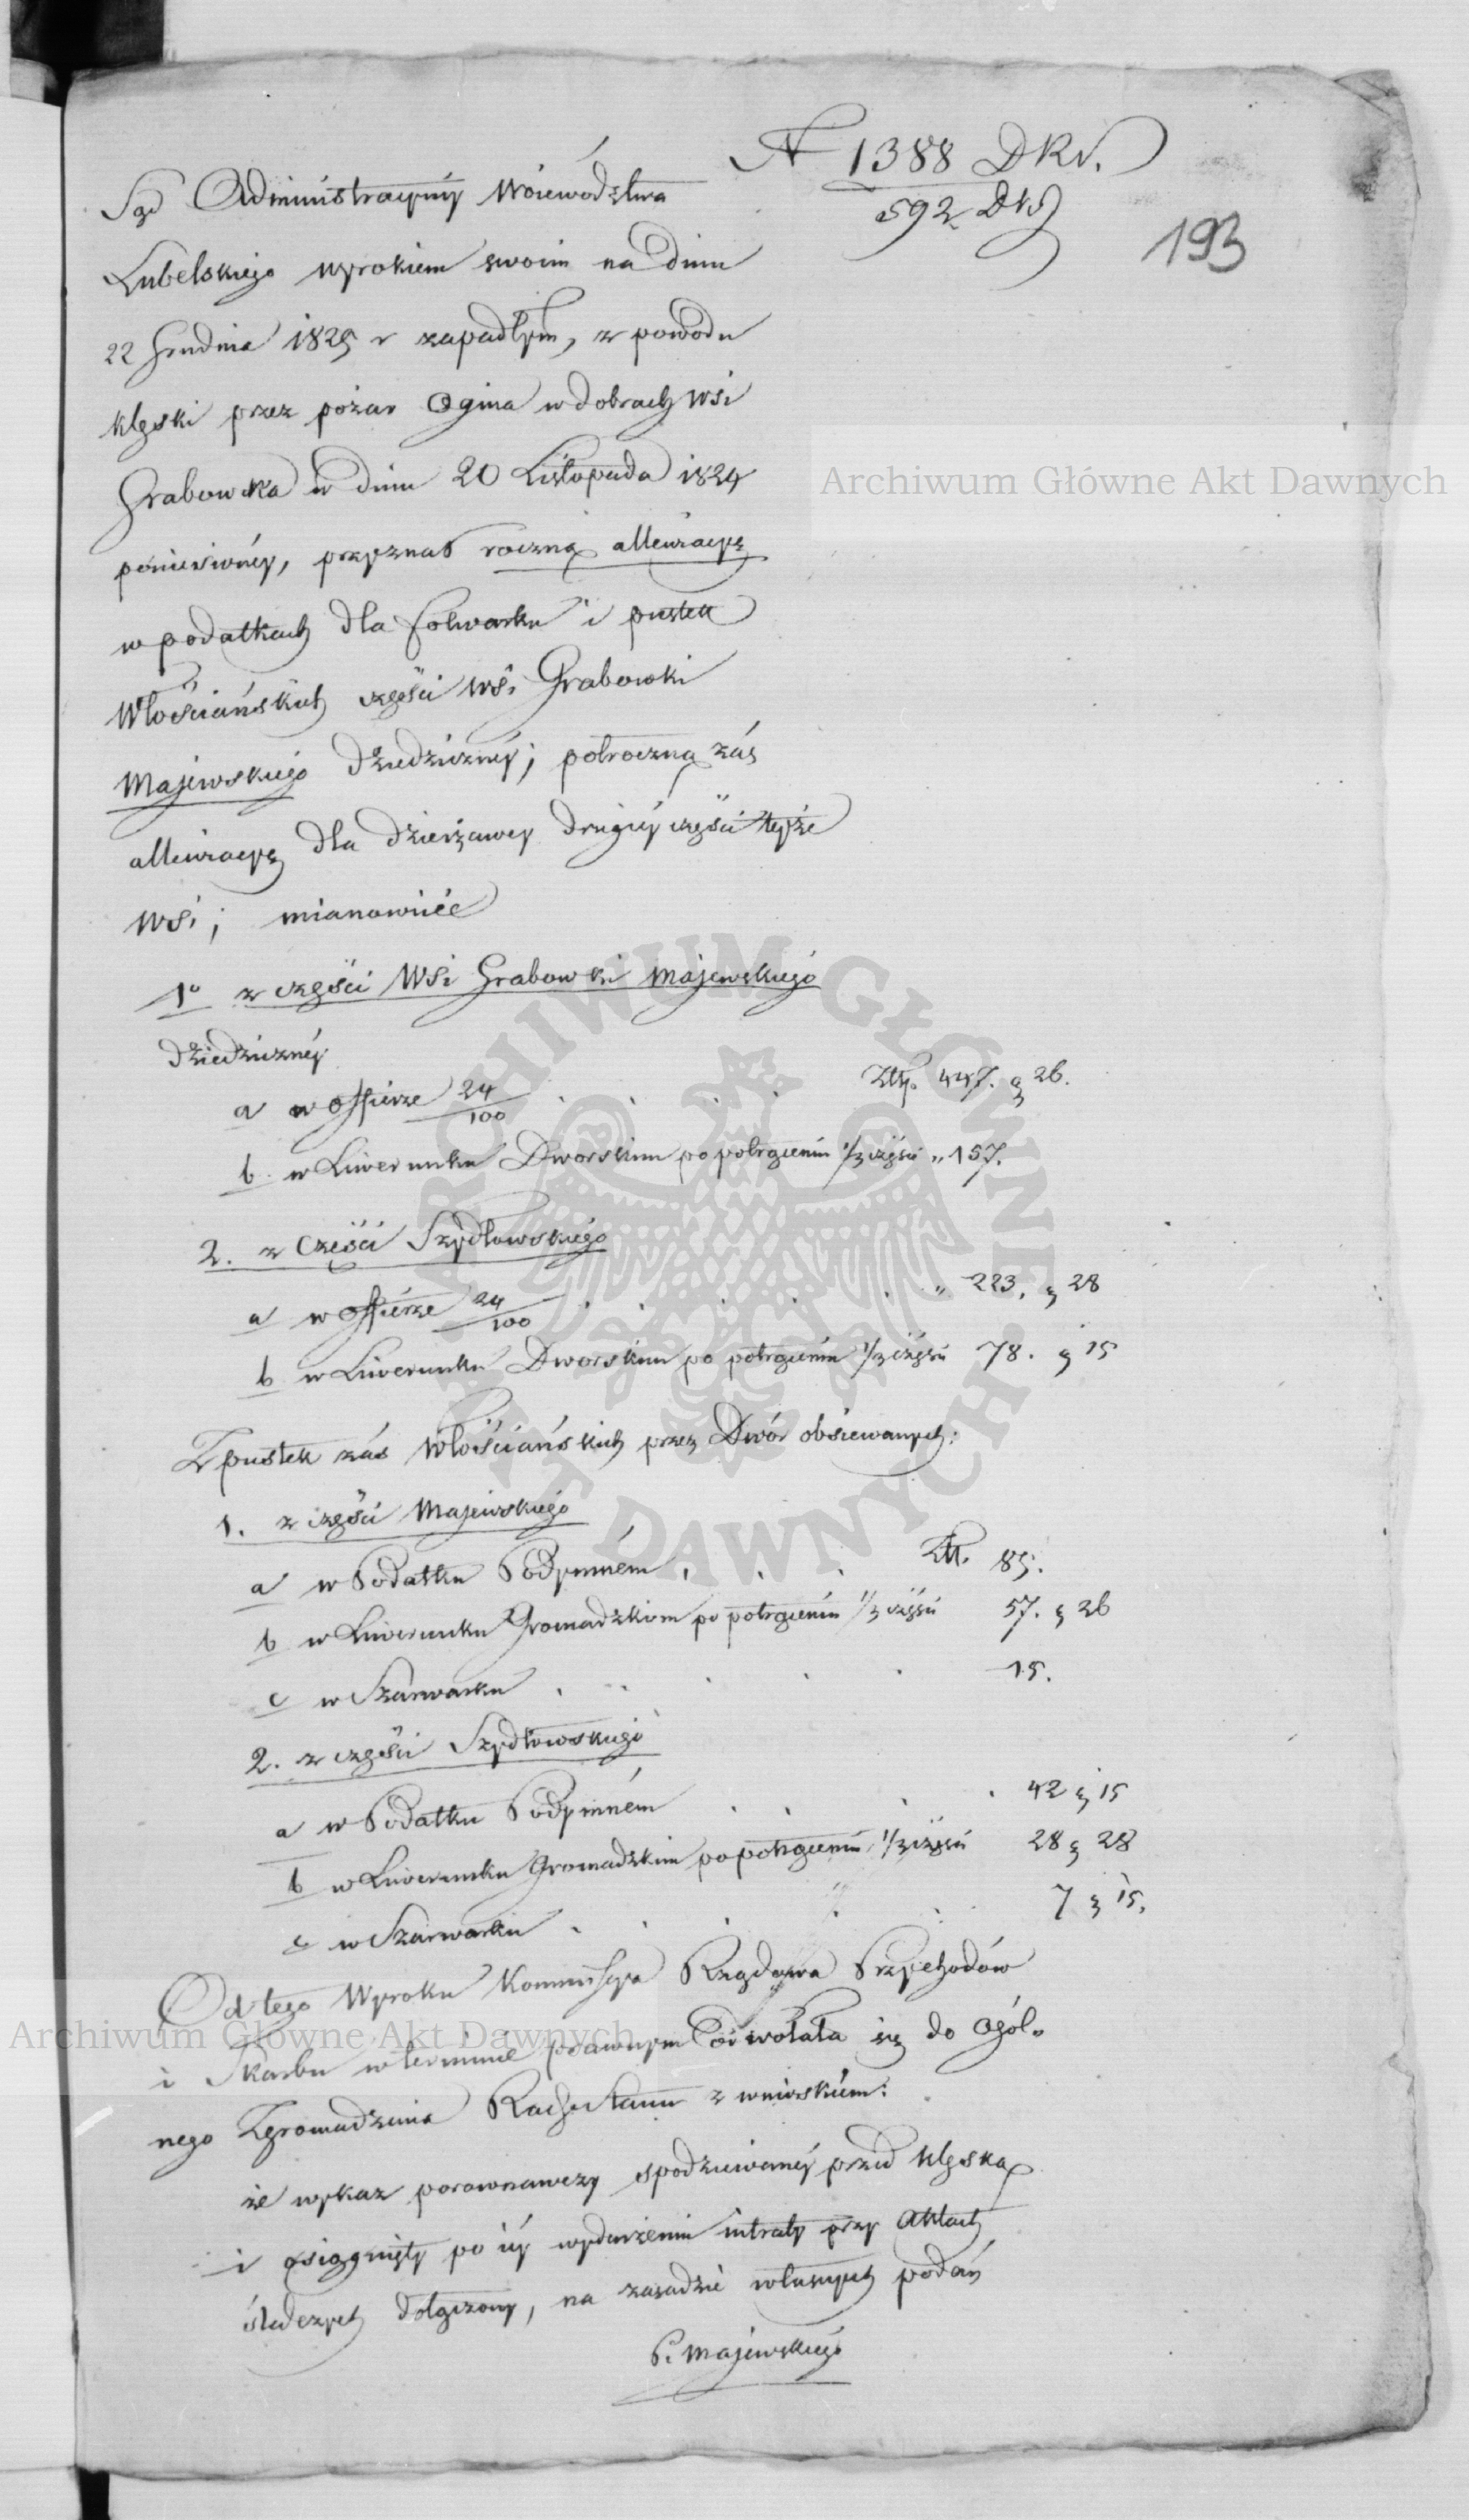 N 1388 DKN.
592 DNS
193
Sąd Administracyiny Woiewództwa
Lubelskiego wyrokiem swoim na dniu
22 Grudnia 1825 r zapadłym, z powodu
klęski przez pożar Ognia w dobrach wsi
Grabowka w dniu 20 Listopada 1824
poniesionéy, przyznał roczną allewiacyę
w podatkach dla folwarku i pustek
Włościańskich części wsi Grabowki
Majewskiego dziedzicznéy; połroczną záś
allewiacyę dla dzierżawcy drugiéy części teyże
wsi; mianowicie
1º z części Wsi Grabowki Majewskiego
dziedzicznéy
a w Offierze 24/100 . . . . Złtp. 447. g 26.
b. w Liwerunku Dworskim po potrąceniu 1/3 części „ 157.
2. z Części Szydłowskiego
a w Offierze 24/100 . . . . . „ 223. g 28
b w Liwerunku Dworskim po potrąceniu 1/3 części 78. g 15
Z pustek záś Włościańskich przez Dwór obsiewanych:
1. z części Majewskiego
a w Podatku Podymném . . . Złt. 85.
b w Liwerunku Gromadzkim po potrąceniu 1/3 części 57. g 26
c w Szarwarku . . . . . 15.
2. z części Szydłowskiego
a w Podatku Podymném . . . . 42 g 15
b w Liwerunku Gromadzkim po potrąceniu 1/3 części 28 g 28
c w Szarwarku . . . . . 7 g 15.
Od tego Wyroku Kommissya Rządowa Przychodów
i Skarbu w terminie prawnym odwołała się do Ogól-
nego Zgromadzenia Rady Stanu z wnioskiem:
że wykaz porownawczy spodziewanéy przed klęską
i osiągnięty po iéy wydarzeniu intraty przy Aktach
śledczych dołączony, na zasadzie własnych podań
P. Majewskiego
Archiwum Główne Akt Dawnych
ARCHIWUM GŁÓWNE AKT DAWNYCH
Archiwum Główne Akt Dawnych